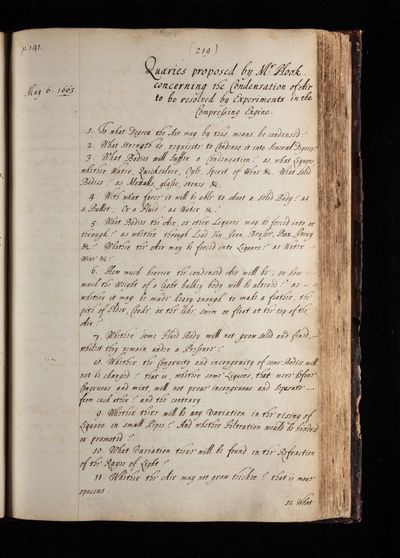 p. 141.
(219)
Quaries proposed by Mr Hook
concerning the Condensation of Air
to be resolved by Experiments in the
Compressing Engine.
May 6. 1663
1. To what Degree the Air may by this means be condensed?
2. What strength is requisite to Condense it into several Degrees?
3. What Bodies will suffer a Condensation? as what Liquors
whether Water, Quicksilver, Oyle, Spirit of Wine &c. What solid
Bodies? as Metalls, glasse, stones &c.
4. With what force it will be able to shoot a solid Body? as
a Bullet; Or a Fluid? as Water &c.
5. What Bodies the Air, or other Liquors may be forced into or
through? as whether through Lead Tin Iron Brasse, Box, Ivory
&c. Whether the Air may be forced into Liquors? as Water
Wine &c?
6. How much heavier the condensed Air will be; or how
much the Weight of a light bulky body will be altered? as
whether it may be made heavy enough to make a feather, the
pith of Elder, Corke or the like, swim or float at the top of the
Air?
7. Whether some Fluid Body will not grow solid and fixed,
whilest they remain under a Pressure?
8. Whether the Congruity and incongruity of some Bodies will
not be changed? that is, whether some Liquors, that were before
Congruous and mixt, will not prove incongruous and separate
from each other? and the contrary.
9. Whether there will be any Variation in the rising of
Liquors in small Pipes? And whether Filtration would be hindred
or promoted?
10. What Variation there will be found in the Refraction
of the Rayes of Light?
11. Whether the Air may not grow thicker? that is more
opacous.
12 What